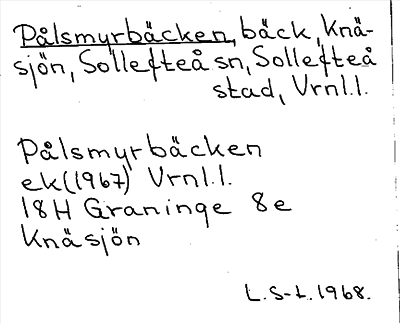 Pålsmyrbäcken, bäck, Knä-
sjön, Sollefteå sn, Sollefteå
stad, Vrnl.l.
Pålsmyrbäcken
ek(1967) Vrnl.l.
18H Graninge 8e
Knäsjön
L.S-L. 1968.